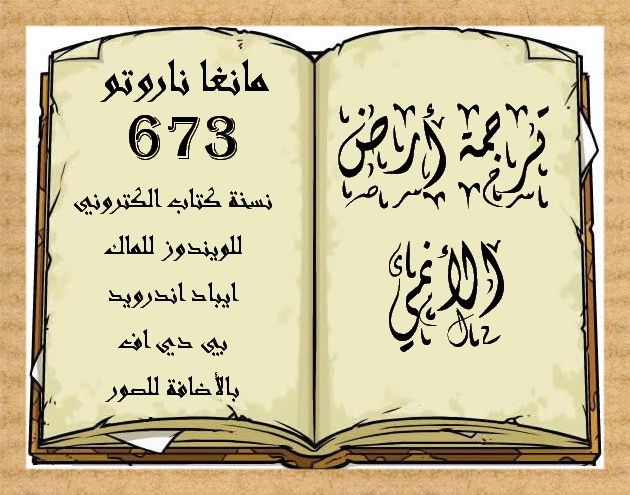 ترجمة أرض
الأنمي
مانغا ناروتو
673
نسخة كتاب الكتروني
للويندوز للماك
ايباد اندرويد
بي دي اف
بالأضافة للصور